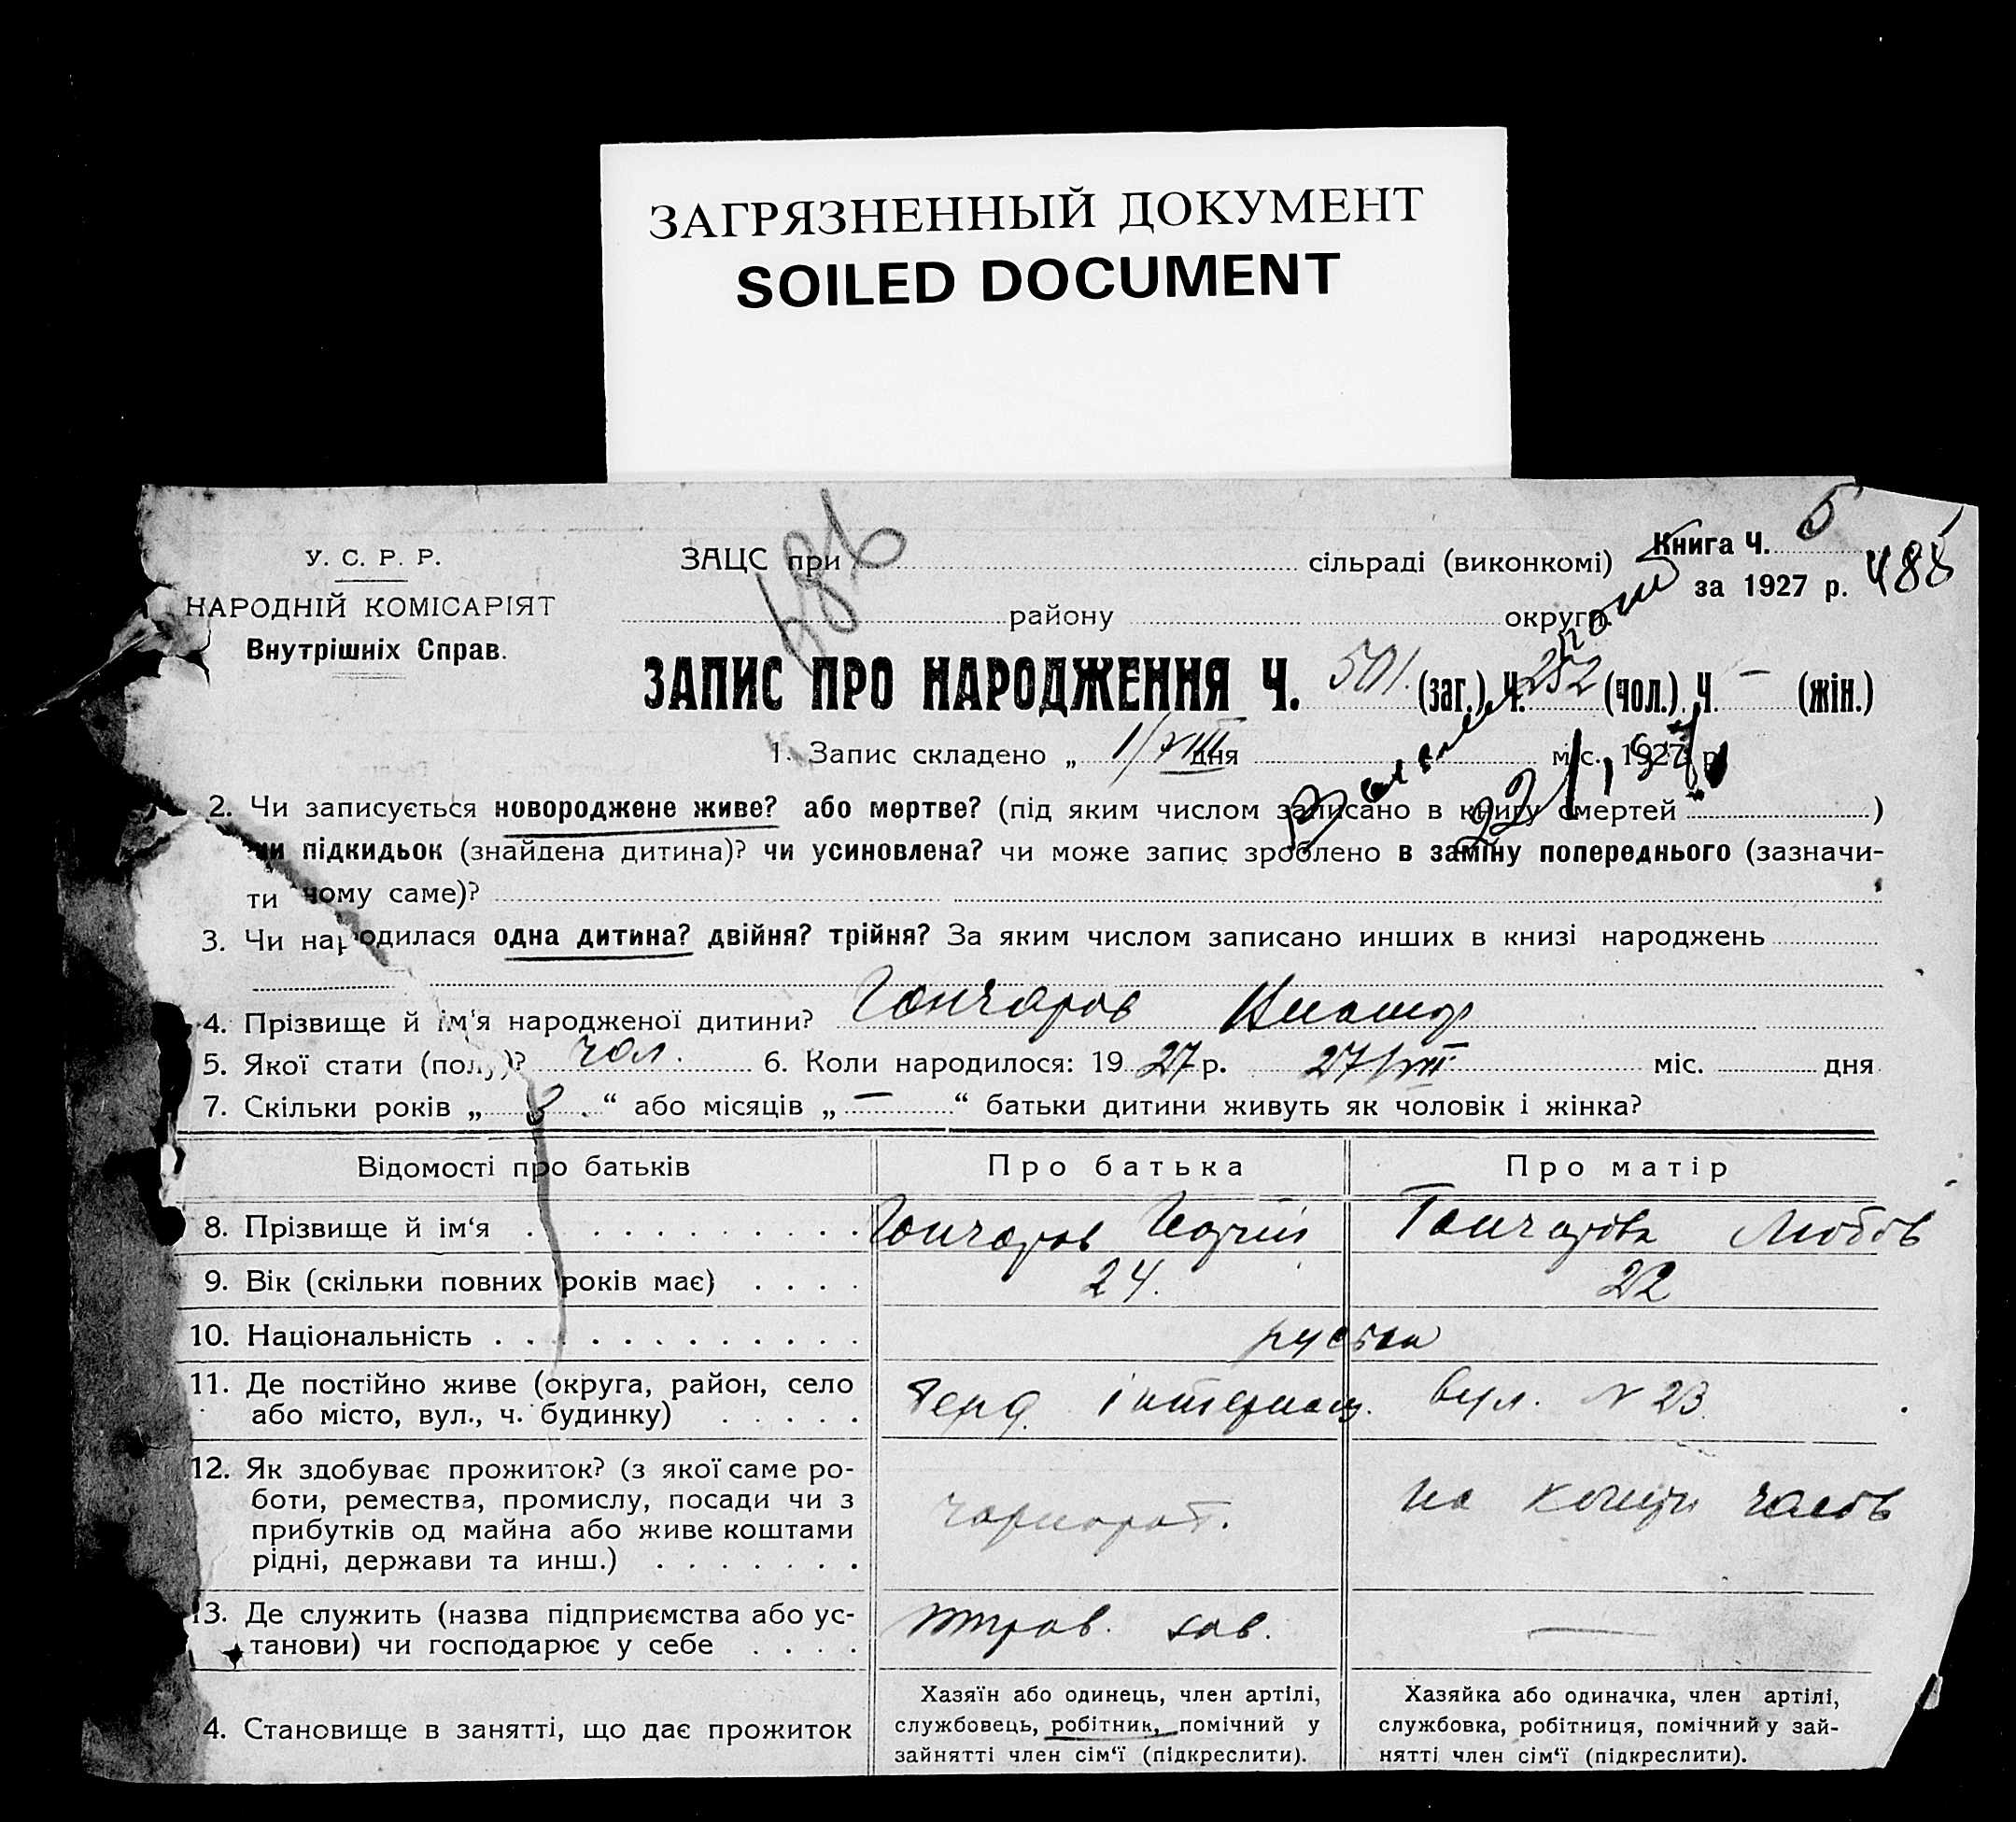 ЗАГРЯЗНЕННЫЙ ДОКУМЕНТ
SOILED DOCUMENT
У. С. Р. Р.
НАРОДНІЙ КОМІСАРІЯТ
Внутрішніх Справ.
486
ЗАЦС при сільраді (виконкомі)
Книга Ч. 5
за 1927 р. 488
району округи.
ЗАПИС ПРО НАРОДЖЕННЯ Ч. 501. (заг.). Ч. 252 (чол.). Ч. — (жін.)
1. Запис складено „ 1/VIII дня міс. 1927 р.
2. Чи записується новороджене живе? або мертве? (під яким числом записано в книгу смертей )
чи підкидьок (знайдена дитина)? чи усиновлена? чи може запис зроблено в заміну попереднього (зазначи-
ти чому саме)?
3. Чи народилася одна дитина? двійня? трійня? За яким числом записано инших в книзі народжень
4. Прізвище й ім'я народженої дитини? Гончаров
5. Якої стати (полу)? чол. 6. Коли народилося: 19 27 р. 27/VII міс. дня
7. Скільки років „ “ або місяців „ — “ батьки дитини живуть як чоловік і жінка?
Відомості про батьків Про батька Про матір
8. Прізвище й ім‘я Гончаров Гончарова Любов
9. Вік (скільки повних років має) 24. 22
10. Національність
11. Де постійно живе (округа, район, село
або місто, вул., ч. будинку) інтернац. вул. N 23.
12. Як здобуває прожиток? (з якої саме ро-
боти, ремества, промислу, посади чи з
прибутків од майна або живе коштами
рідні, держави та инш.) чорнороб. на
13. Де служить (назва підприємства або ус-
танови) чи господарює у себе —
4. Становище в занятті, що дає прожиток
Хазяїн або одинець, член артілі,
службовець, робітник, помічний у
зайнятті член сім‘ї (підкреслити).
Хазяйка або одиначка, член артілі,
службовка, робітниця, помічний у зай-
нятті член сім‘ї (підкреслити).